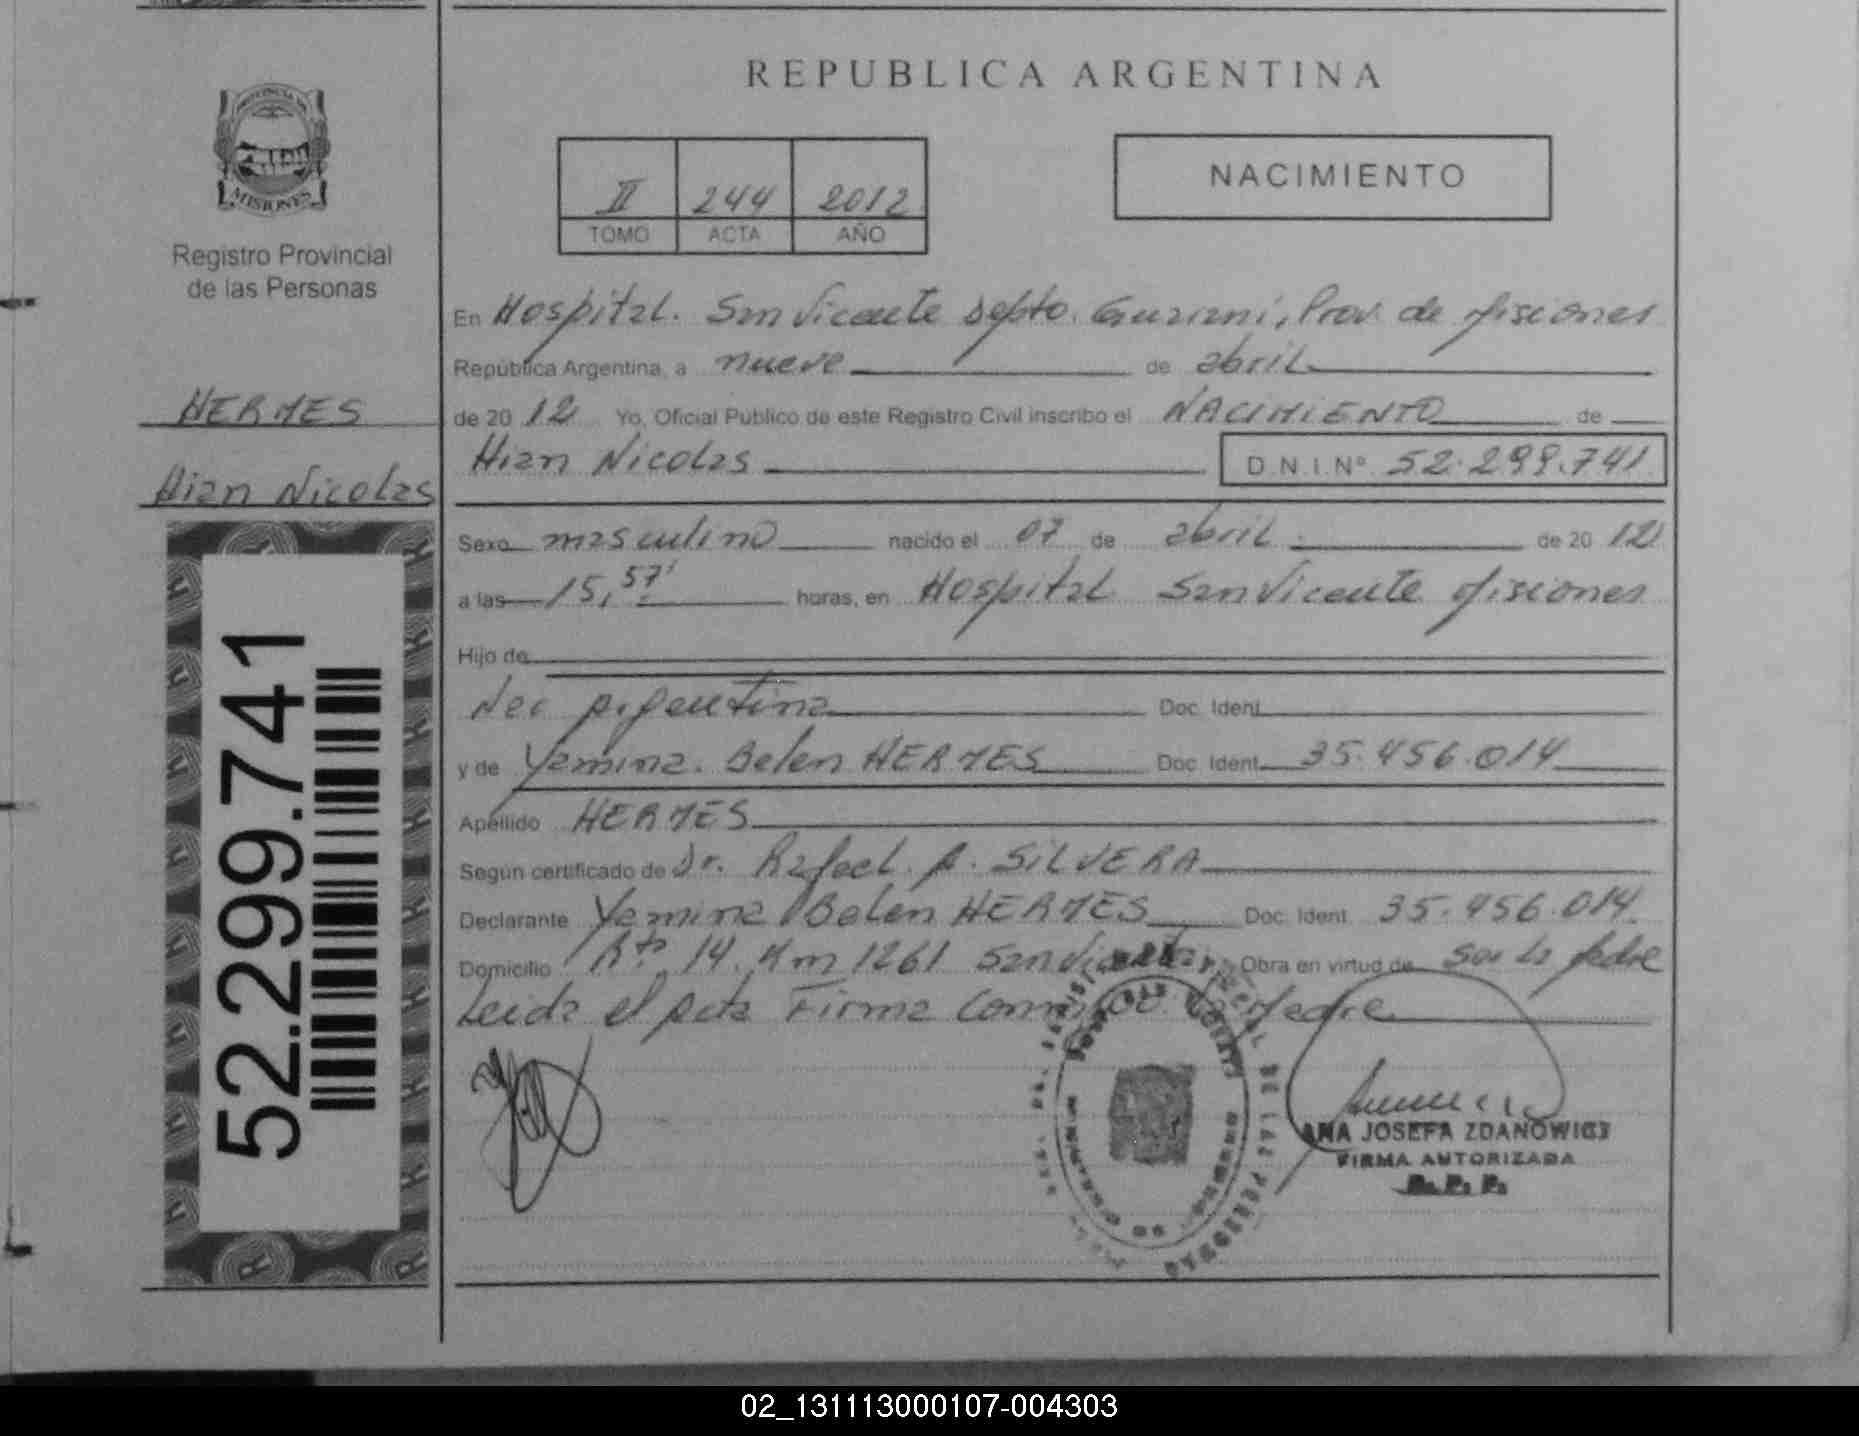 REPUBLICA ARGENTINA
PROVINCIA DE
MISIONES
Registro Provincial
de las Personas
II 244 2012
TOMO ACTA AÑO
NACIMIENTO
HERMES
Hian Nicolas
52.299.741
En Hospital. San Vicente Depto. Guarani, Prov. de Misiones
República Argentina, a nueve de abril
de 20 12 Yo, Oficial Público de este Registro Civil inscribo el NACIMIENTO de
Hian Nicolas D.N.I.Nº 52.299.741
Sexo masculino nacido el 07 de abril de 20 12
a las 15,57' horas, en Hospital San Vicente Misiones
Hijo de
Nac Argentina Doc. Ident.
y de Yamina. Belen HERMES Doc. Ident. 35.456.014
Apellido HERMES
Según certificado de Dr. Rafael. A. SILVERA
Declarante Yamina Belen HERMES Doc. Ident. 35.456.014
Domicilio Rta 14. Km 1261 San Vicente Obra en virtud de Ser la Madre
Leida el Acta Firma Conmigo La Madre
DE LAS PERSONAS
ANA JOSEFA ZDANOWICZ
FIRMA AUTORIZADA
R. P. P.
02_131113000107-004303